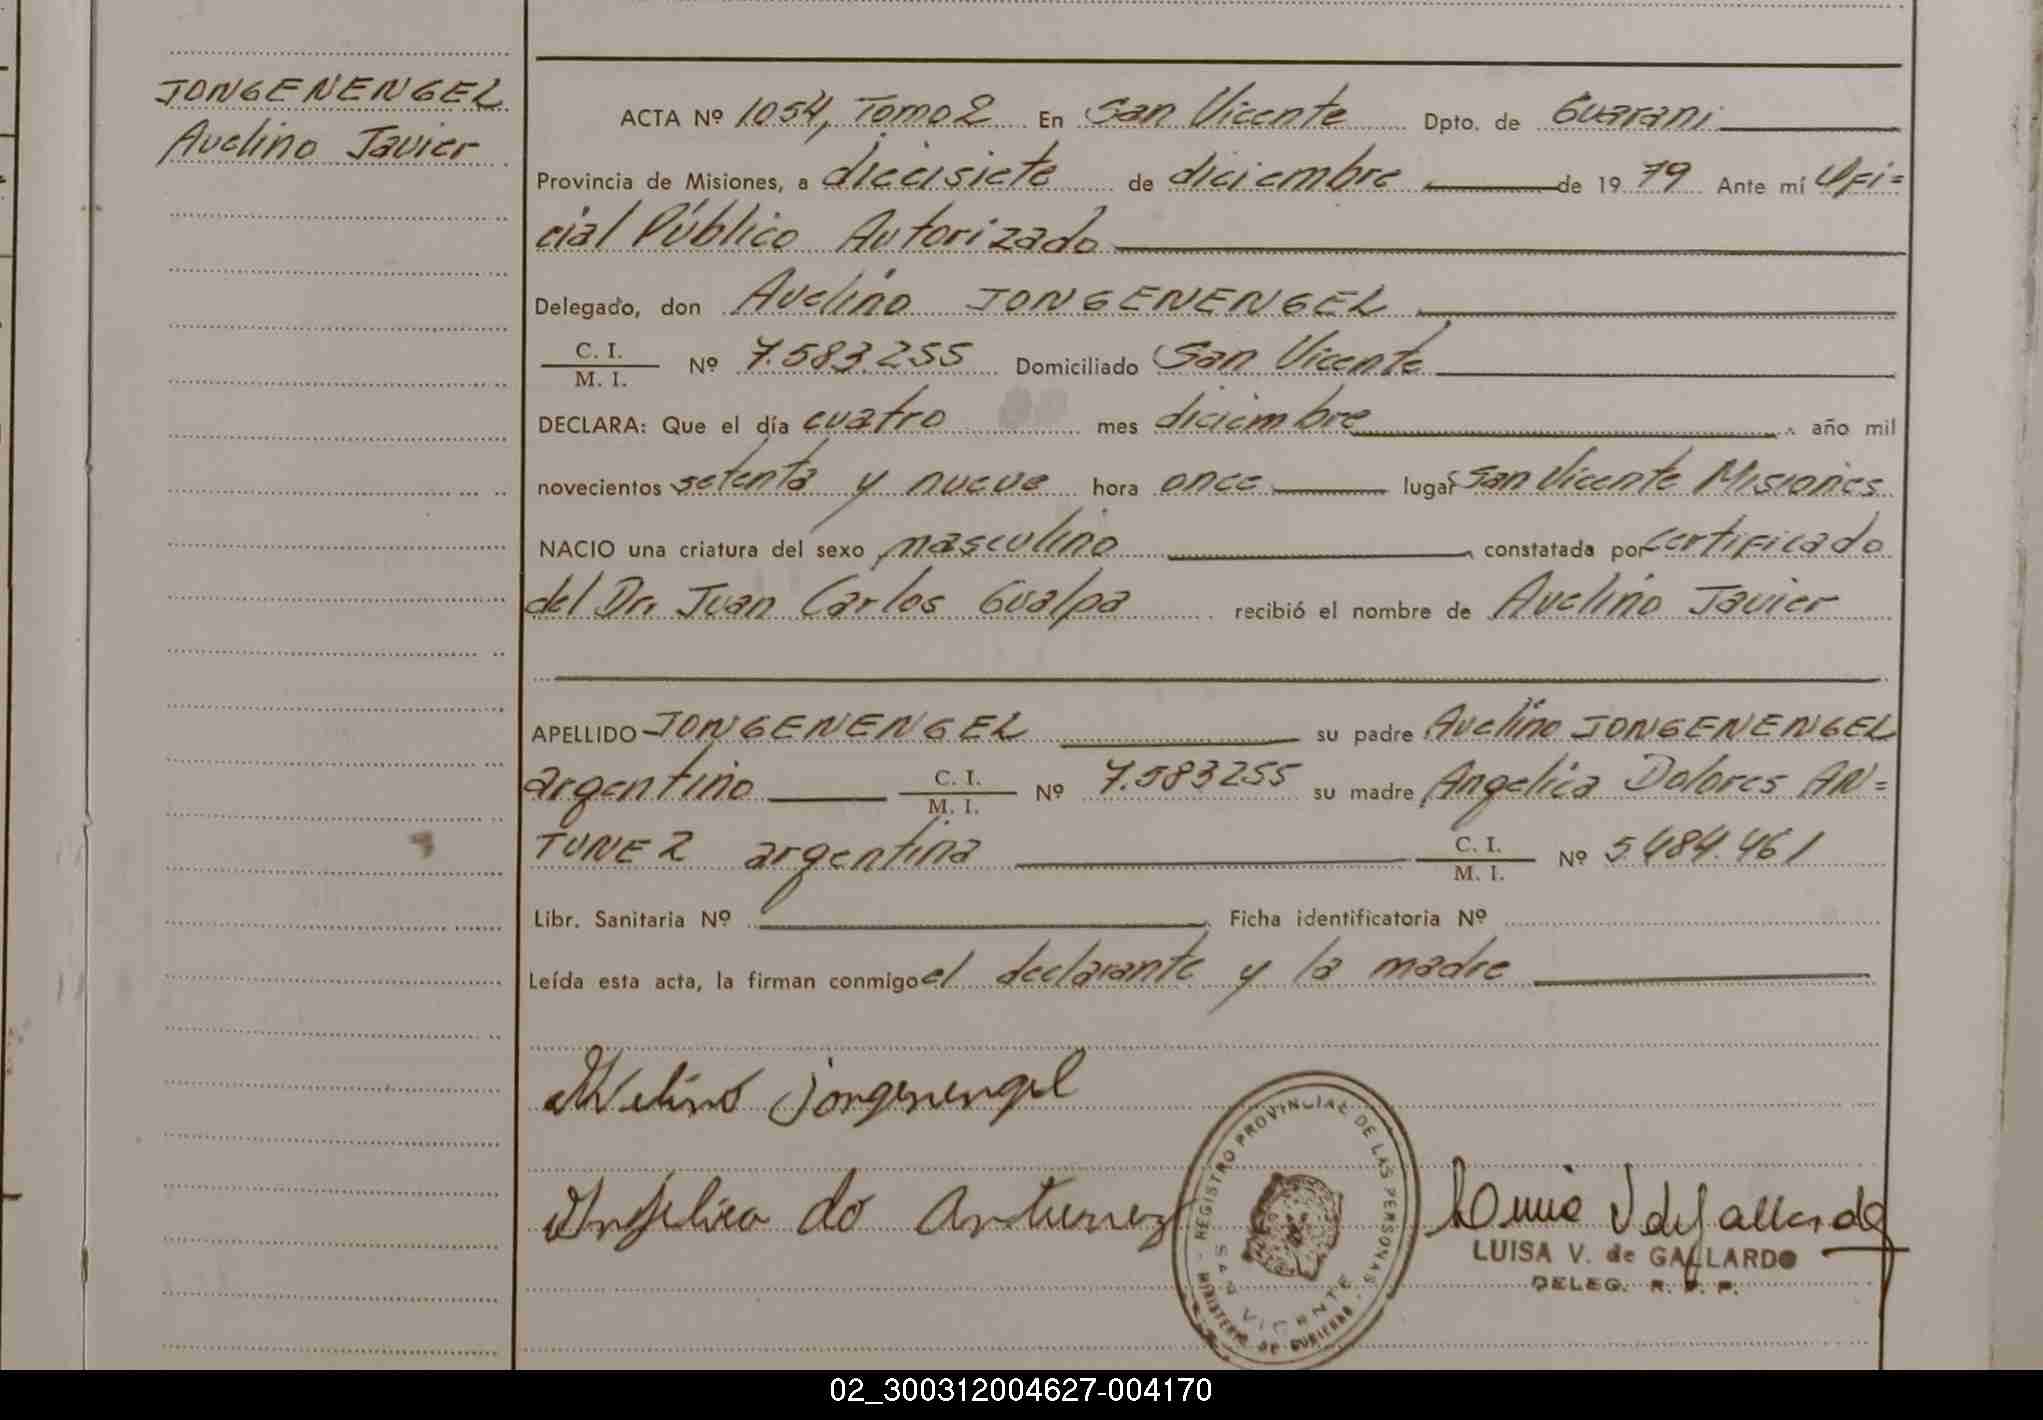 JONGENENGEL
Avelino Javier
ACTA Nº 1054, Tomo 2 En San Vicente Dpto. de Guarani
Provincia de Misiones, a diecisiete de diciembre de 1979 Ante mí Ofi=
cial Público Autorizado
Delegado, don Avelino JONGENENGEL
C. I.
M. I.
Nº 7.583.255 Domiciliado San Vicente
DECLARA: Que el día cuatro mes diciembre año mil
novecientos setenta y nueve hora once lugar San Vicente Misiones
NACIO una criatura del sexo masculino constatada por certificado
del Dr. Juan Carlos Gualpa recibió el nombre de Avelino Javier
APELLIDO JONGENENGEL su padre Avelino JONGENENGEL
argentino C. I. / M. I. Nº 7.583255 su madre Angelica Dolores AN=
TUNEZ argentina C. I. / M. I. Nº 5.484.461
Libr. Sanitaria Nº Ficha identificatoria Nº
Leída esta acta, la firman conmigo el declarante y la madre
Avelino jongenengel
Angelica do Antunez
REGISTRO PROVINCIAL DE LAS PERSONAS
SAN VICENTE
MINISTERIO DE GOBIERNO
Luisa V de Gallardo
LUISA V. de GALLARDO
DELEG. R. P. P.
02_300312004627-004170